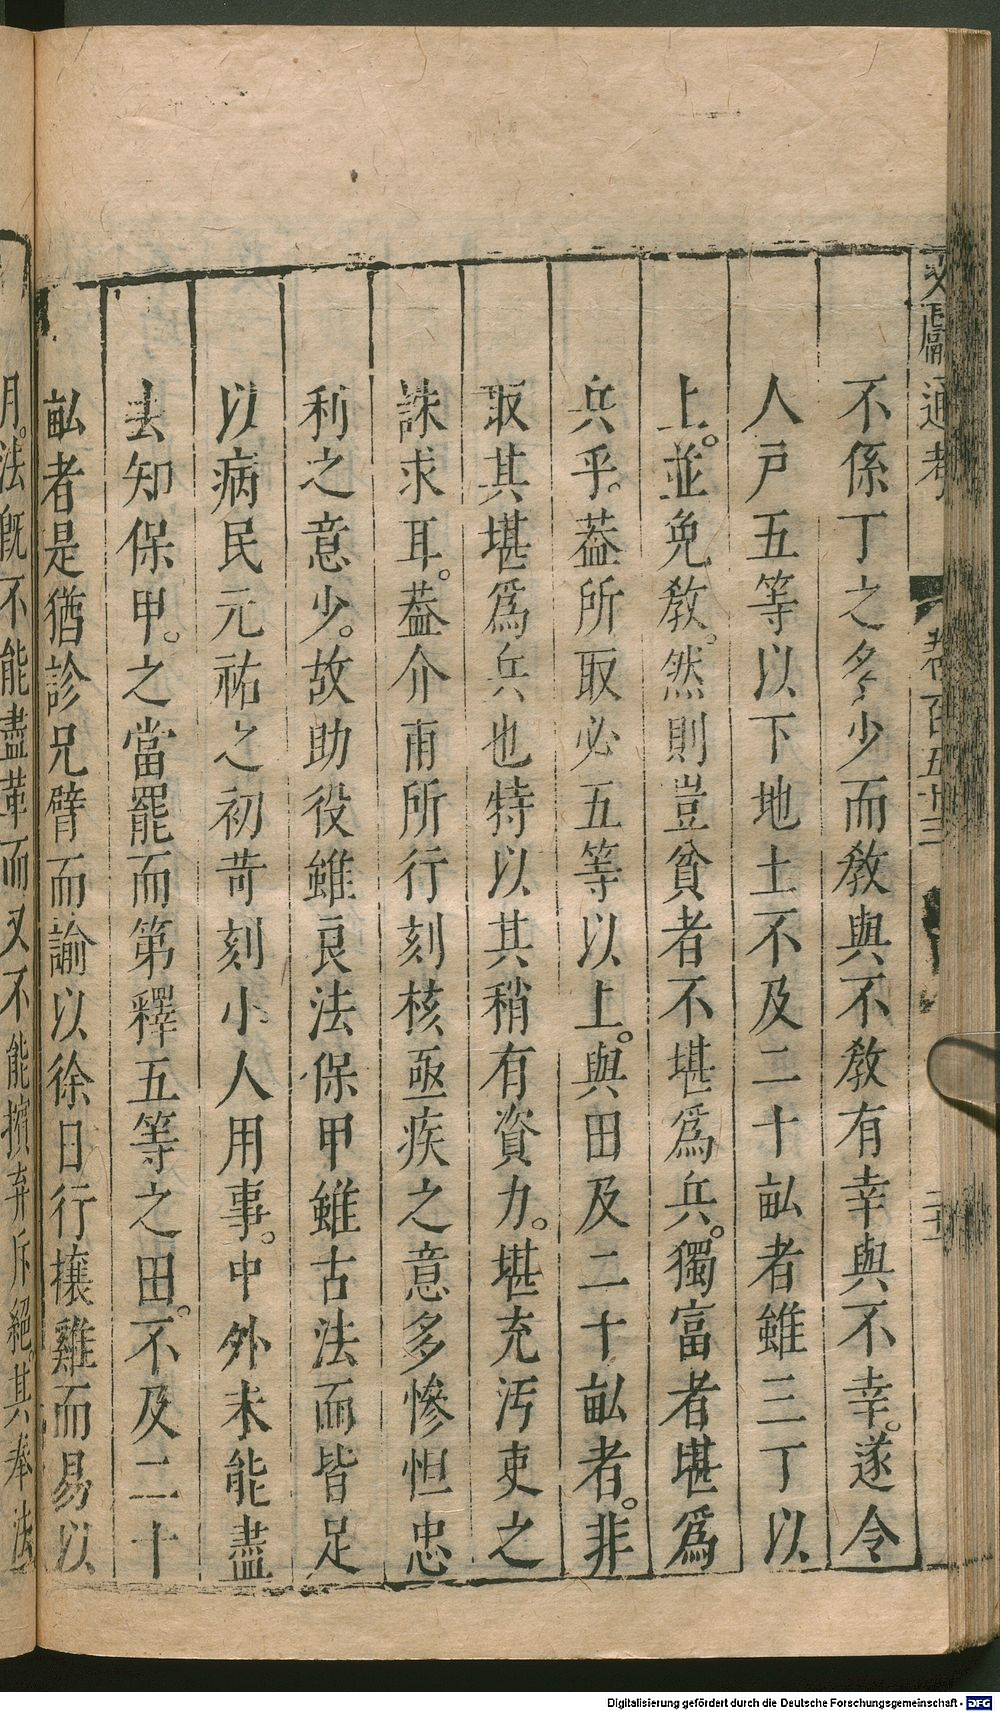 文獻通考 卷百五十三
不係丁之多少而敎與不敎有幸與不幸。遂令
人戸五等以下地土不及二十畝者雖三丁以
上。並免敎。然則豈貧者不堪爲兵。獨富者堪爲
兵乎。葢所取必五等以上。與田及二十畝者。非
取其堪爲兵也特以其稍有資力。堪充汚吏之
誅求耳。葢介甫所行刻核亟疾之意多慘怛忠
利之意少。故助役雖良法保甲雖古法而皆足
以病民元祐之初苛刻小人用事。中外未能盡
去知保甲。之當罷而第釋五等之田。不及二十
畝者是猶診兄臂而諭以徐日行攘雞而易以
月。法旣不能盡革而又不能擯弃斥絕。其奉法
Digitalisierung gefördert durch die Deutsche Forschungsgemeinschaft - DFG